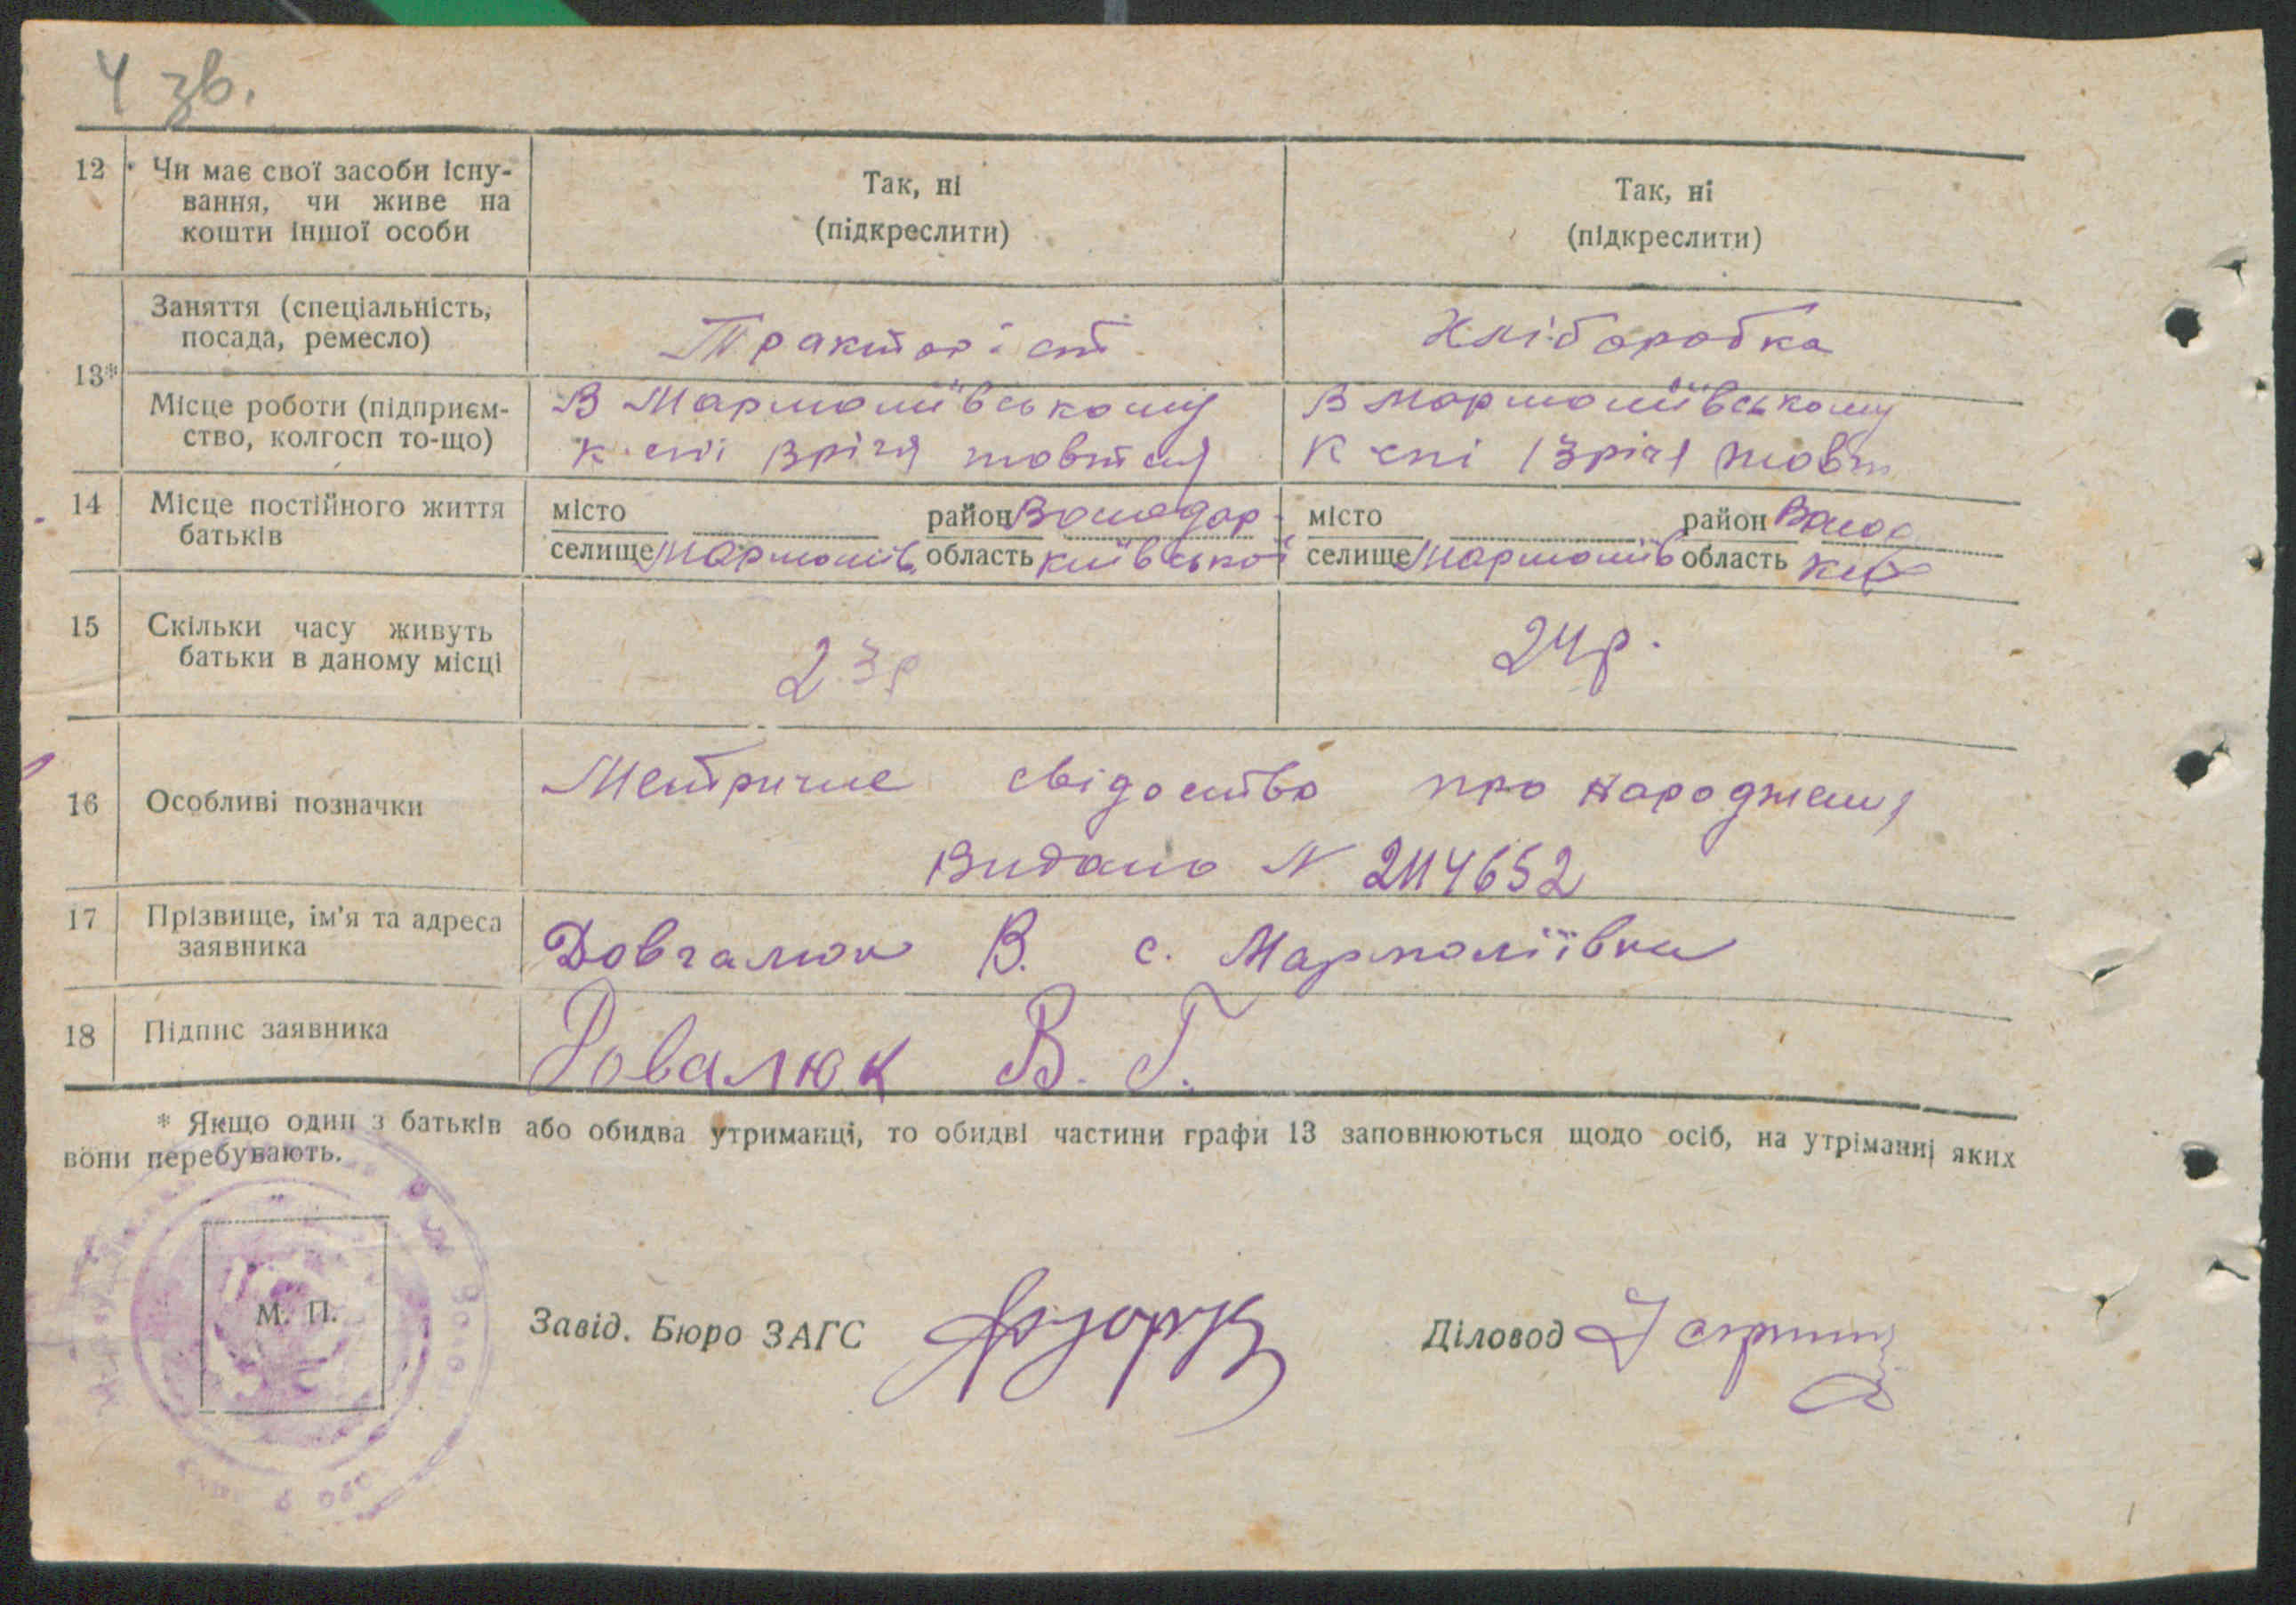 4 зв.
12 Чи має свої засоби існу-
вання, чи живе на
кошти іншої особи
Так, ні
(підкреслити)
Так, ні
(підкреслити)
13*
Заняття (спеціальність,
посада, ремесло)
Тракторіст
Хліборобка
Місце роботи (підприєм-
ство, колгосп то-що)
В Мармоліївському
к-спі річчя жовтня
В Мармоліївському
к-спі річчя жовт
14 Місце постійного життя
батьків
місто район Володар
селище Мармоліїв область київської
місто район Волод
селище Мармоліїв область
15 Скільки часу живуть
батьки в даному місці
23р
24р.
16 Особливі позначки
Метричне свідоство про народження
Видано N 2114652
17 Прізвище, ім'я та адреса
заявника
Довгалюк В. с. Мармоліївки
18 Підпис заявника
Довалюк В. Г.
* Якщо один з батьків або обидва утриманці, то обидві частини графи 13 заповнюються щодо осіб, на утріманні яких
вони перебувають.
М. П.
Завід. Бюро ЗАГС
Діловод